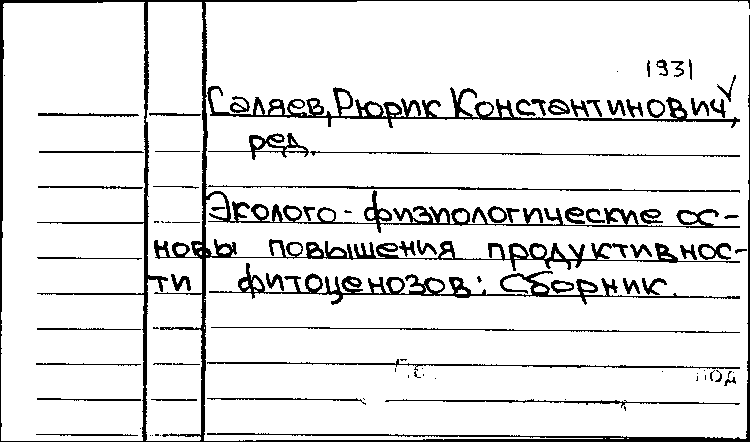 1931
Саляев, Рюрик Константинович,
ред.
Эколого-физиологические ос-
новы повышения продуктивнос-
ти фитоценозов: Сборник.
под